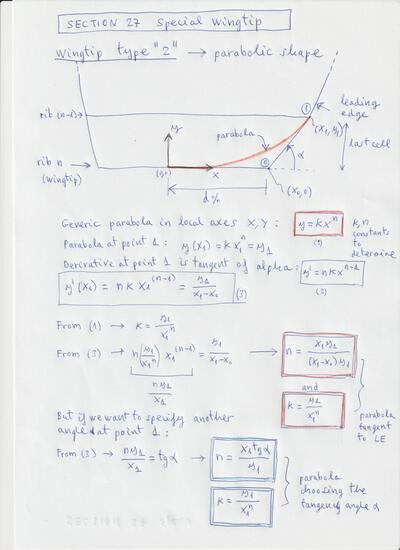 SECTION 27 Special wingtip
Wingtip type "2" → parabolic shape
leading edge
rib (n-1)
(x₁, y₁)
parabola
last cell
y
α
rib n
(wingtip)
x
(x₀,0)
d%
Generic parabola in local axes X, Y: y = k xⁿ
(1)
k, n constants to determine
Parabola at point 1: y(x₁) = k x₁ⁿ = y₁
Derivative at point 1 is tangent of alpha: y' = n k xⁿ⁻¹
(2)
y'(x₁) = n k x₁⁽ⁿ⁻¹⁾ = y₁/(x₁-x₀) (3)
From (1) → k = y₁/x₁ⁿ
From (3) → n (y₁/x₁ⁿ) x₁⁽ⁿ⁻¹⁾ = y₁/(x₁-x₀) → n = x₁y₁/(x₁-x₀)y₁
n y₁/x₁
and
k = y₁/x₁ⁿ
parabola tangent to LE
But if we want to specify another
angle α at point 1:
From (3) → n y₁/x₁ = tg α → n = x₁ tg α/y₁
k = y₁/x₁ⁿ
parabola choosing the tangency angle α